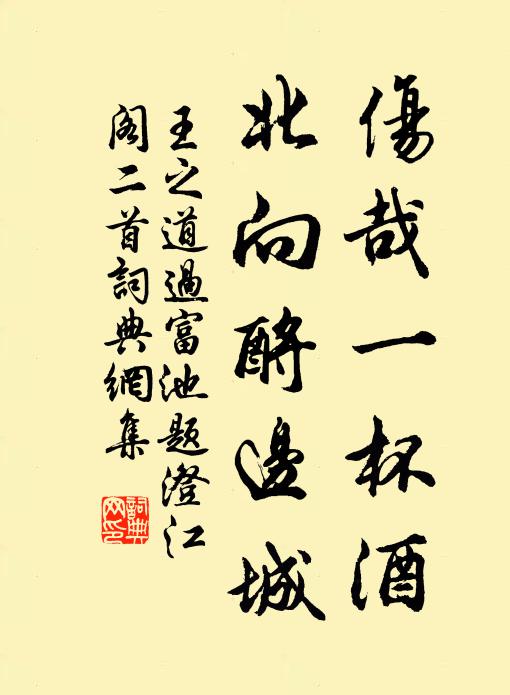 傷哉一杯酒
北向酹邊城
王之道過富池題澄江
閣二首詞典網集
詞典
網印